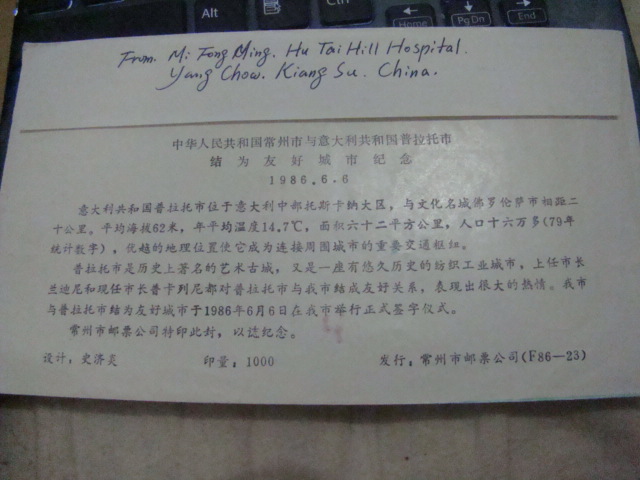 Alt
Ctrl
Home
PgDn
End
From. Mi Tong Ming. Hu Tai Hill Hospital.
Yang Chow. Kiang Su. China.
中华人民共和国常州市与意大利共和国普拉托市
结为友好城市纪念
1986.6.6
意大利共和国普拉托市位于意大利中部托斯卡纳大区，与文化名城佛罗伦萨市相距二
十公里。平均海拔62米，年平均温度14.7℃，面积六十二平方公里，人口十六万多(79年
统计数字)，优越的地理位置使它成为连接周围城市的重要交通枢纽。
普拉托市是历史上著名的艺术古城，又是一座有悠久历史的纺织工业城市，上任市长
兰迪尼和现任市长普卡列尼都对普拉托市与我市结成友好关系，表现出很大的热情。我市
与普拉托市结为友好城市于1986年6月6日在我市举行正式签字仪式。
常州市邮票公司特印此封，以志纪念。
设计：史济炎 印量：1000 发行：常州市邮票公司(F86—23)